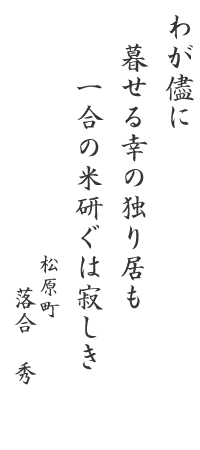 わが儘に
暮せる幸の独り居も
一合の米研ぐは寂しき
松原町
落合　秀